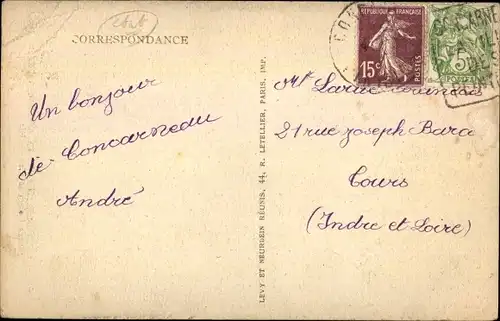 CORRESPONDANCE
Un bonjour
de Concarneau
André
LEVY ET NEURDEIN RÉUNIS, 44, R. LETELLIER, PARIS, IMP.
RÉPUBLIQUE FRANÇAISE
15c
POSTES
5
21 rue Joseph Bara
Tours
(Indre et Loire)